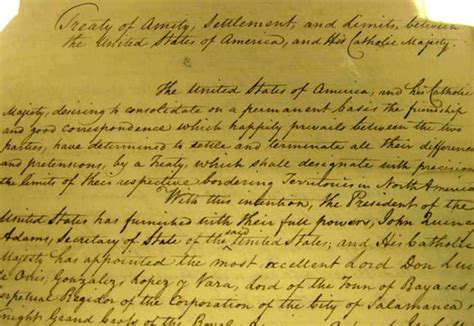 Treaty of Amity, Settlement, and Limits, between
the United States of America, and His Catholic Majesty.
The United States of America, and his Catholic
Majesty, desiring to consolidate on a permanent basis the friendship
and good correspondence which happily prevails between the two
parties, have determined to settle and terminate all their differences
and pretensions, by a Treaty, which shall designate with precision
the limits of their respective bordering Territories in North America.
With this intention, the President of the
United States has furnished with their full powers, John Quincy
Adams, Secretary of State of the said United States; and His Catholic
Majesty has appointed the most excellent Lord Don Luis
de Onis, Gonzalez, Lopez y Vara, Lord of the Town of Rayaces
Perpetual Regidor of the Corporation of the City of Salamanca
Knight Grand Cross of the Royal American